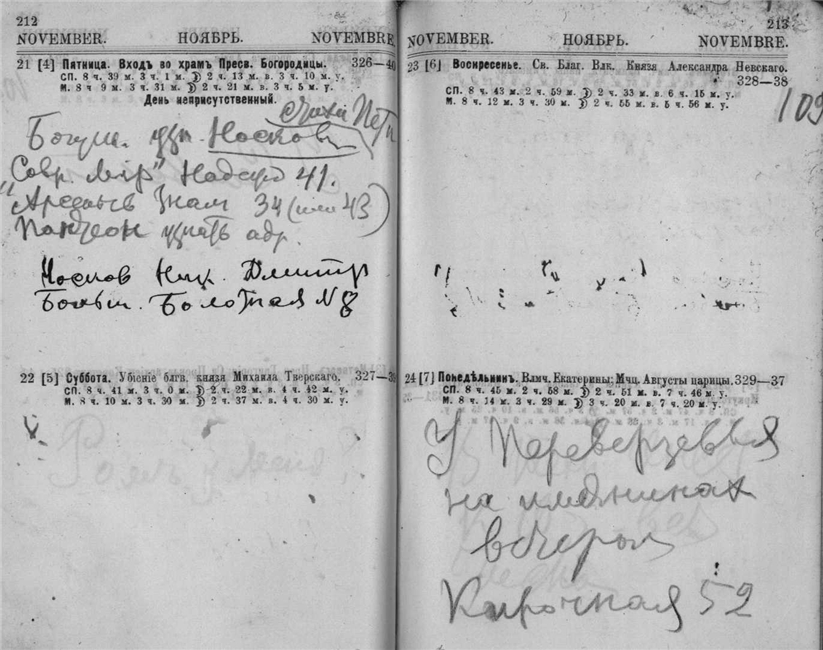 212
NOVEMBER. НОЯБРЬ. NOVEMBRE.
21 [4] Пятница. Входъ во храмъ Пресв. Богородицы. 326—40
СП. 8 ч. 39 м. 3 ч. 1 м. ☽ 2 ч. 13 м. в. 3 ч. 10 м. у.
М. 8 ч 9 м. 3 ч. 31 м. ☽ 2 ч. 21 м. в. 3 ч. 5 м. у.
День неприсутственный.
Носков
„Совр. Мiр“ Надежд 41.
34 (или 43)
Пантеон узнать адр.
Носков Ник. Дмитр
Больш. Болотная N 8
22 [5] Суббота. Убіеніе блгв. князя Михаила Тверскаго. 327—39
СП. 8 ч. 41 м. 3 ч. 0 м. ☽ 2 ч. 22 м. в. 4 ч. 42 м. у.
М. 8 ч. 10 м. 3 ч. 30 м. ☽ 2 ч. 37 м. в. 4 ч. 30 м. у.
213
NOVEMBER. НОЯБРЬ. NOVEMBRE.
23 [6] Воскресенье. Св. Благ. Влк. Князя Александра Невскаго.
328—38
СП. 8 ч. 43 м. 2 ч. 59 м. ☽ 2 ч. 33 м. в. 6 ч. 15 м. у.
М. 8 ч. 12 м. 3 ч. 30 м. ☽ 2 ч. 55 м. в. 5 ч. 56 м. у.
109
24 [7] Понедѣльникъ. Влмч. Екатерины; Мчц. Августы царицы. 329—37
СП. 8 ч. 45 м. 2 ч. 58 м. ☽ 2 ч. 51 м. в. 7 ч. 46 м. у.
М. 8 ч. 14 м. 3 ч. 29 м. ☽ 3 ч. 20 м. в. 7 ч. 20 м. у.
У Переверзевых
на имянинах
вечером
Кирочная 52